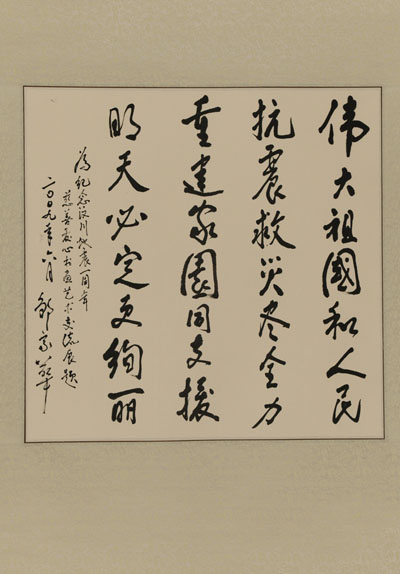 伟大祖國和人民
抗震救災尽全力
重建家園同支援
明天必定更绚丽
为纪念汶川地震一周年
慈善爱心书画艺术交流展题
二〇〇九年六月 邹家华